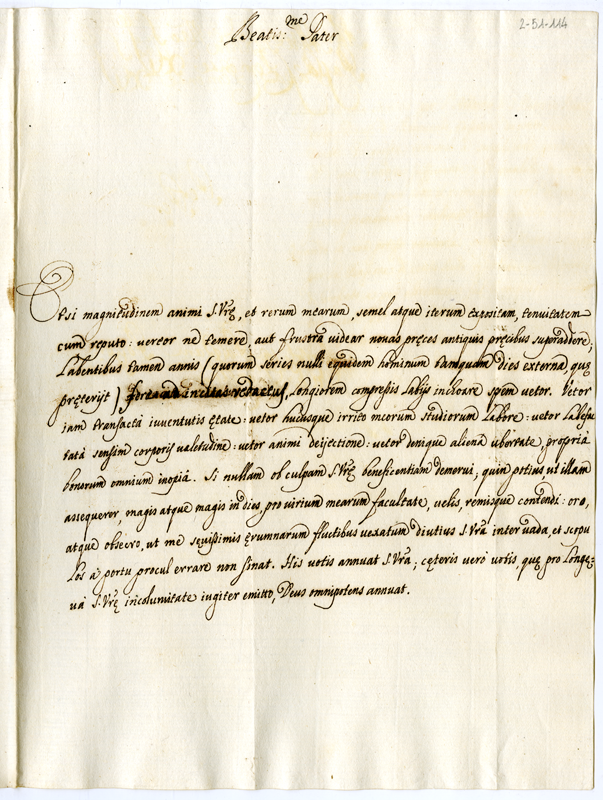 2-51-114
Beatis:me Pater
Etsi magnitudinem animi S. Vrę, et rerum mearum, semel atque iterum expositam, tenuitatem
cum reputo: vereor ne temerè, aut frustrà videar nouas pręces antiquis pręcibus supraddere;
Labentibus tamen annis (quorum series nulli equidem hominum tamquam dies externa, quę
pręterijt) Longiorem compressis Labijs inchoare spem vetor. Vetor
iam transactà iuuentutis ętate: vetor hucusque irrito meorum studiorum Labore: vetor Labefac
tatà sensim corporis valetudine: vetor animi deijectione: vetor denique alienà vbertate, proprià
bonorum omnium inopià. Si nullam ob culpam S. Vrę beneficentiam demerui, quin potius, ut illam
assequerer, magis atque magis in dies, pro virium mearum facultate, velis, remisque contendi: oro,
atque obsecro, ut me sęuissimis ęrumnarum fluctibus vexatum diutius S. Vra inter vada, et scopu
Los a portu procul errare non sinat. His votis annuat S. Vra; cęteris verò votis, quę pro Longę-
uà S. Vrę incolumitate iugiter emitto, Deus omnipotens annuat.